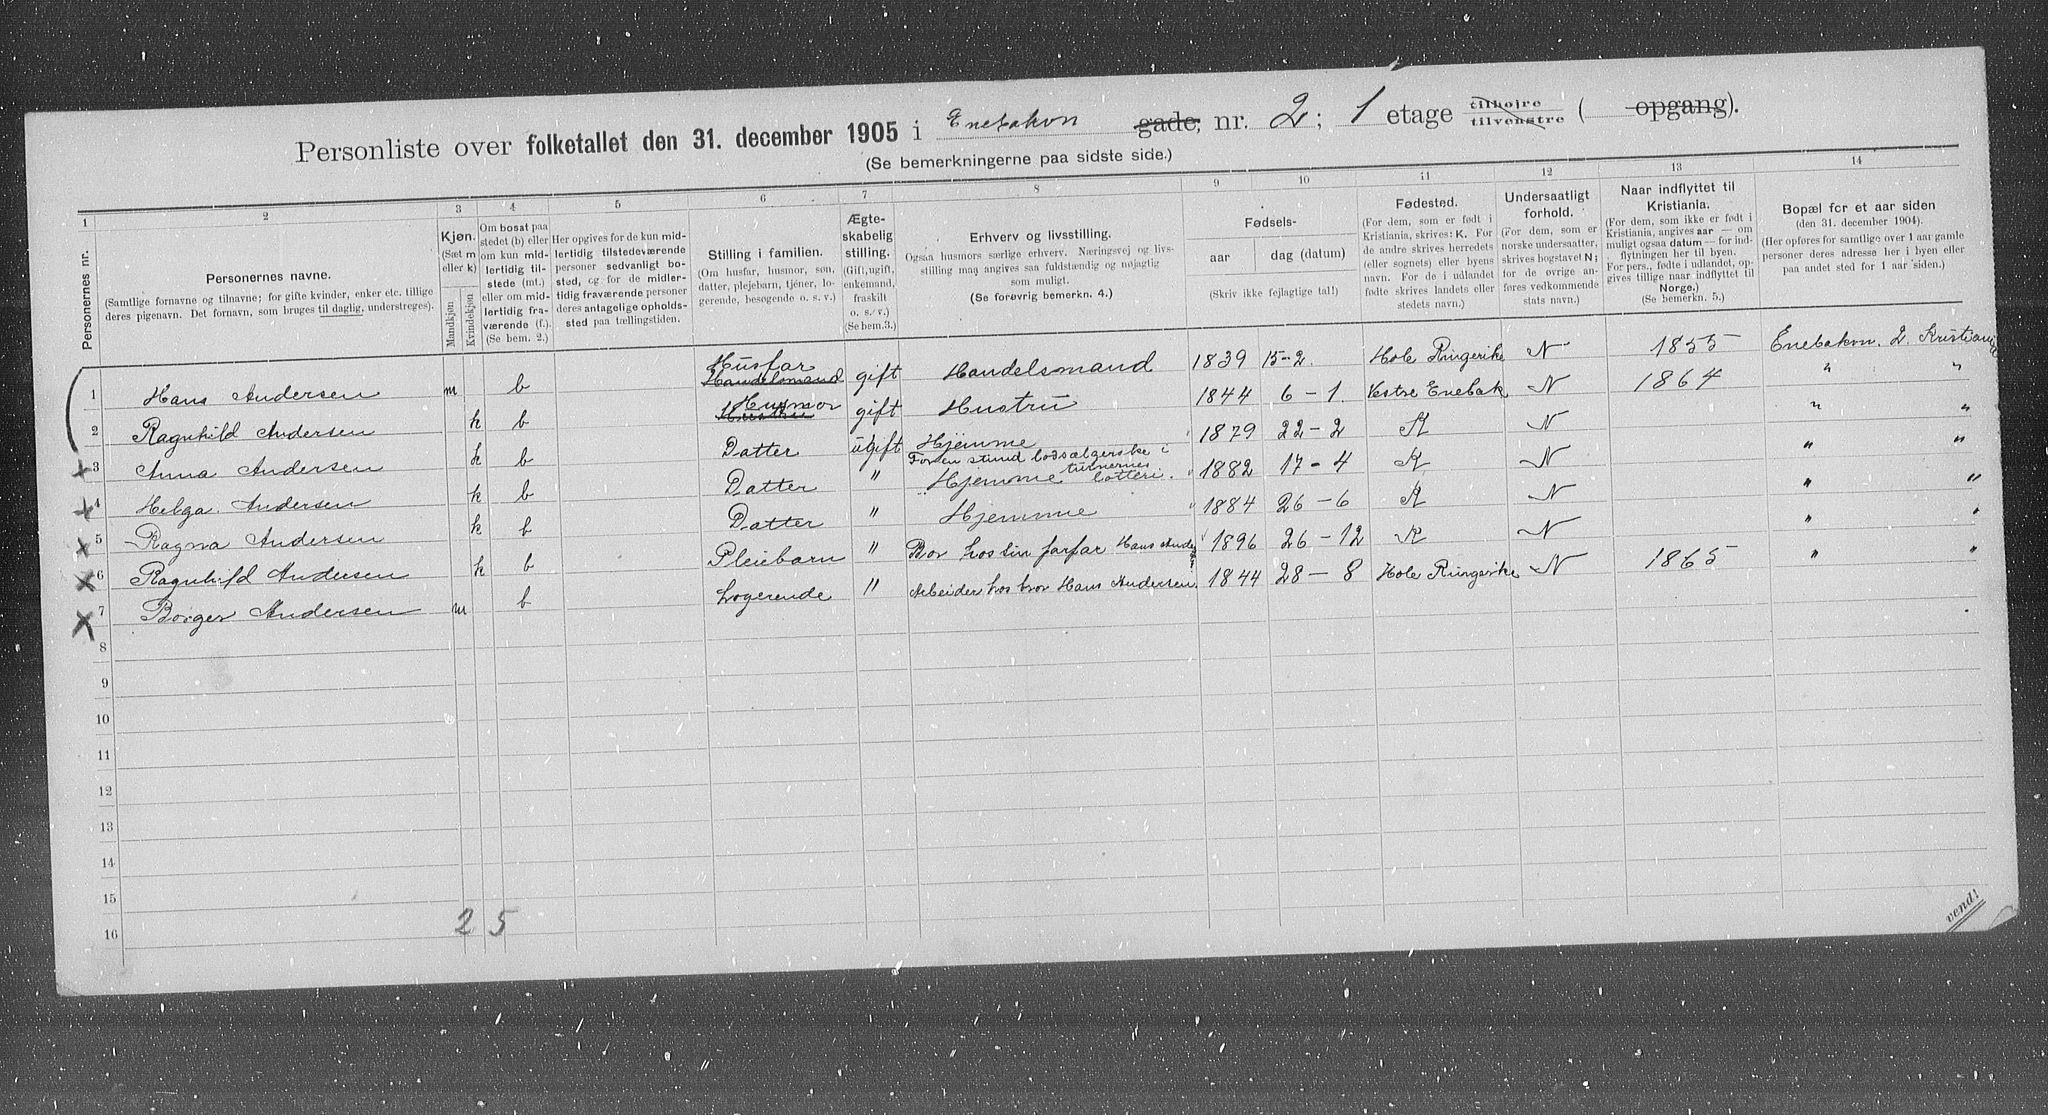 Personliste over folketallet den 31. december 1905 i Enebakvn gade, nr. 2; 1 etage tilhøjre tilvenstre ( opgang).
(Se bemerkningerne paa sidste side.)
1 2 3 4 5 6 7 8 9 10 11 12 13 14
Personernes nr.
Personernes navne.
(Samtlige fornavne og tilnavne; for gifte kvinder, enker etc. tillige
deres pigenavn. Det fornavn, som bruges til daglig, understreges).
Kjøn.
(Sæt m
eller k)
Mandkjøn
Kvindekjøn
Om bosat paa
stedet (b) eller
om kun mid-
lertidig til-
stede (mt.)
eller om mid-
lertidig fra-
værende (f.).
(Se bem. 2.)
Her opgives for de kun mid-
lertidig tilstedeværende
personer sedvanligt bo-
sted, og for de midler-
tidig fraværende personer
deres antagelige opholds-
sted paa tællingstiden.
Stilling i familien.
(Om husfar, husmor, søn,
datter, plejebarn, tjener, lo-
gerende, besøgende o. s. v.)
Ægte-
skabelig
stilling.
(Gift, ugift,
enkemand,
fraskilt
o. s. v.)
(Se bem. 3.)
Erhverv og livsstilling.
Ogsaa husmors særlige erhverv. Næringsvej og livs-
stilling maa angives saa fuldstændig og nøjagtig
som muligt.
(Se forøvrig bemerkn. 4.)
Fødsels-
aar
dag (datum)
(Skriv ikke fejlagtige tal!)
Fødested.
(For dem, som er født i
Kristiania, skrives: K. For
de andre skrives herredets
(eller sognets) eller byens
navn. For de i udlandet
fødte skrives landets eller
stedets navn.)
Undersaatligt
forhold.
(For dem, som er
norske undersaatter,
skrives bogstavet N;
for de øvrige an-
føres vedkommende
stats navn.)
Naar indflyttet til
Kristiania.
(For dem, som ikke er født i
Kristiania, angives aar — om
muligt ogsaa datum — for ind-
flytningen her til byen.
For pers., fødte i udlandet, op-
gives tillige naar indflyttet til
Norge.)
(Se bemerkn. 5.)
Bopæl for et aar siden
(den 31. december 1904).
(Her opføres for samtlige over 1 aar gamle
personer deres adresse her i byen eller
paa andet sted for 1 aar siden.)
1 Hans Andersen m b Husfar Handelsmand gift Handelsmand 1839 15-2. Hole Ringerike N 1855 Enebakvn. 2. Kristiania
2 Ragnhild Andersen k b Husmor Hustru gift Hustru 1844 6-1. Vestre Enebak N 1864 " "
3 Anna Andersen k b Datter ugift Hjemme 1879 22-2 K N " "
4 Helga Andersen k b Datter " For en stund lodsælgerske i turnernes lotteri. Hjemme 1882 17-4 K N " "
5 Ragna Andersen k b Datter " Hjemme 1884 26-6 K N " "
6 Ragnhild Andersen k b Pleiebarn " Bor hos sin farfar Hans Anders 1896 26-12 K N " "
7 Borger Andersen m b Logerende " Arbeider hos bror Hans Andersen. 1844 28-8 Hole Ringerike N 1865 " "
8
9
10
11
12
13
14
15
16
2 5
vend!